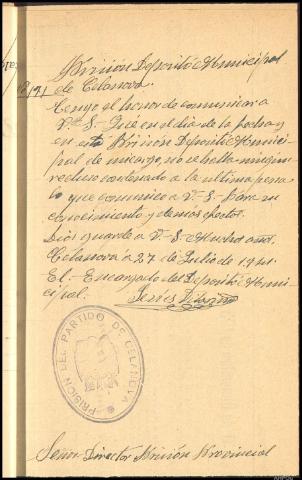 Prisión Deposito Municipal
de Celanova.
Tengo el honor de comunicar a
V.- S.- Que en el dia de la fecha y
en esta Prisión Deposito Munici-
pal de mi cargo, no se halla ningun
recluso condenado a la ultima pena
lo que comunico a V.- S.- Para su
conocimiento y demas efectos.
Dios guarde a V.- S.- Muchos años.
Celanova a 27 de Julio de 1941.
El.- Encargado del Deposito Muni-
cipal.
PRISION DEL PARTIDO DE CELANOVA
Señor Director Prisión Provincial